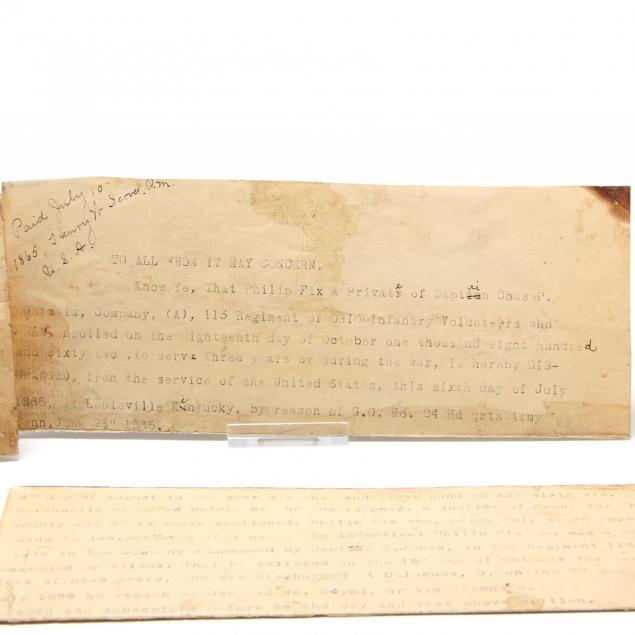 Paid July 10"
1865, Henry W Scovel P.M.
U. S. A.
TO ALL WHOM IT MAY CONCERN.
Know Ye, That Philip Fix a Private of Captain Chas P.
Company, (A), 115 Regiment of OHIO Infantry Volunteers who
enrolled on the Eighteenth day of October one thousand eight hundred
and sixty two ,to serve Three years or during the war, is hereby DIS-
from the service of the United States, this sixth day of July
1865, at Louisville Kentucky, by reason of G.O. No. 24 Hd qrts Army
Tenn, June 23" 1865.
day of August in the year one thousand eight hundred and sixty six,
personally appeared before me the undersigned, a Justice of for the
County and State above mentioned, Philip Fix who, being duly sworn
ding to law, that he is the indentical Philip Fix who was a
in the Company commanded by Captain T.Jones, in the Regiment 115
that he enlisted on the 18" day of October for the
years, and was discharged at Columbus, O. on the 6" day
by reason of
sworn and subscribed before me the day and year above written.